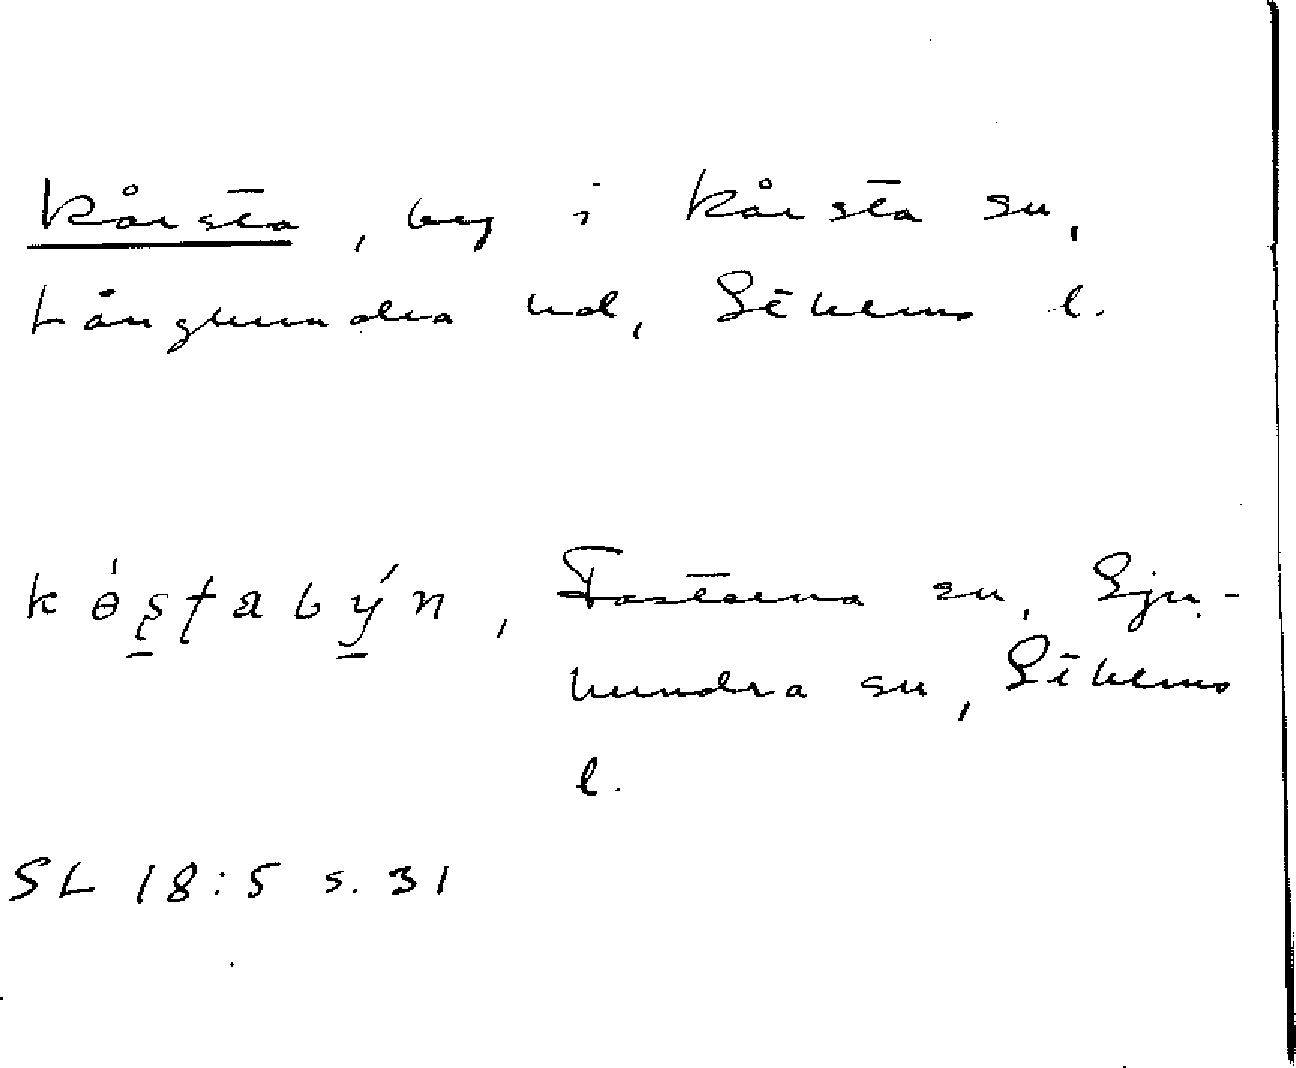 Kårsta, by i Kårsta sn,
Långhundra hd, Sthlms l.
kө́ʂʈabýn, Fasterna sn, Sju-
hundra sn, Sthlms
l.
SL 18:5 s. 31